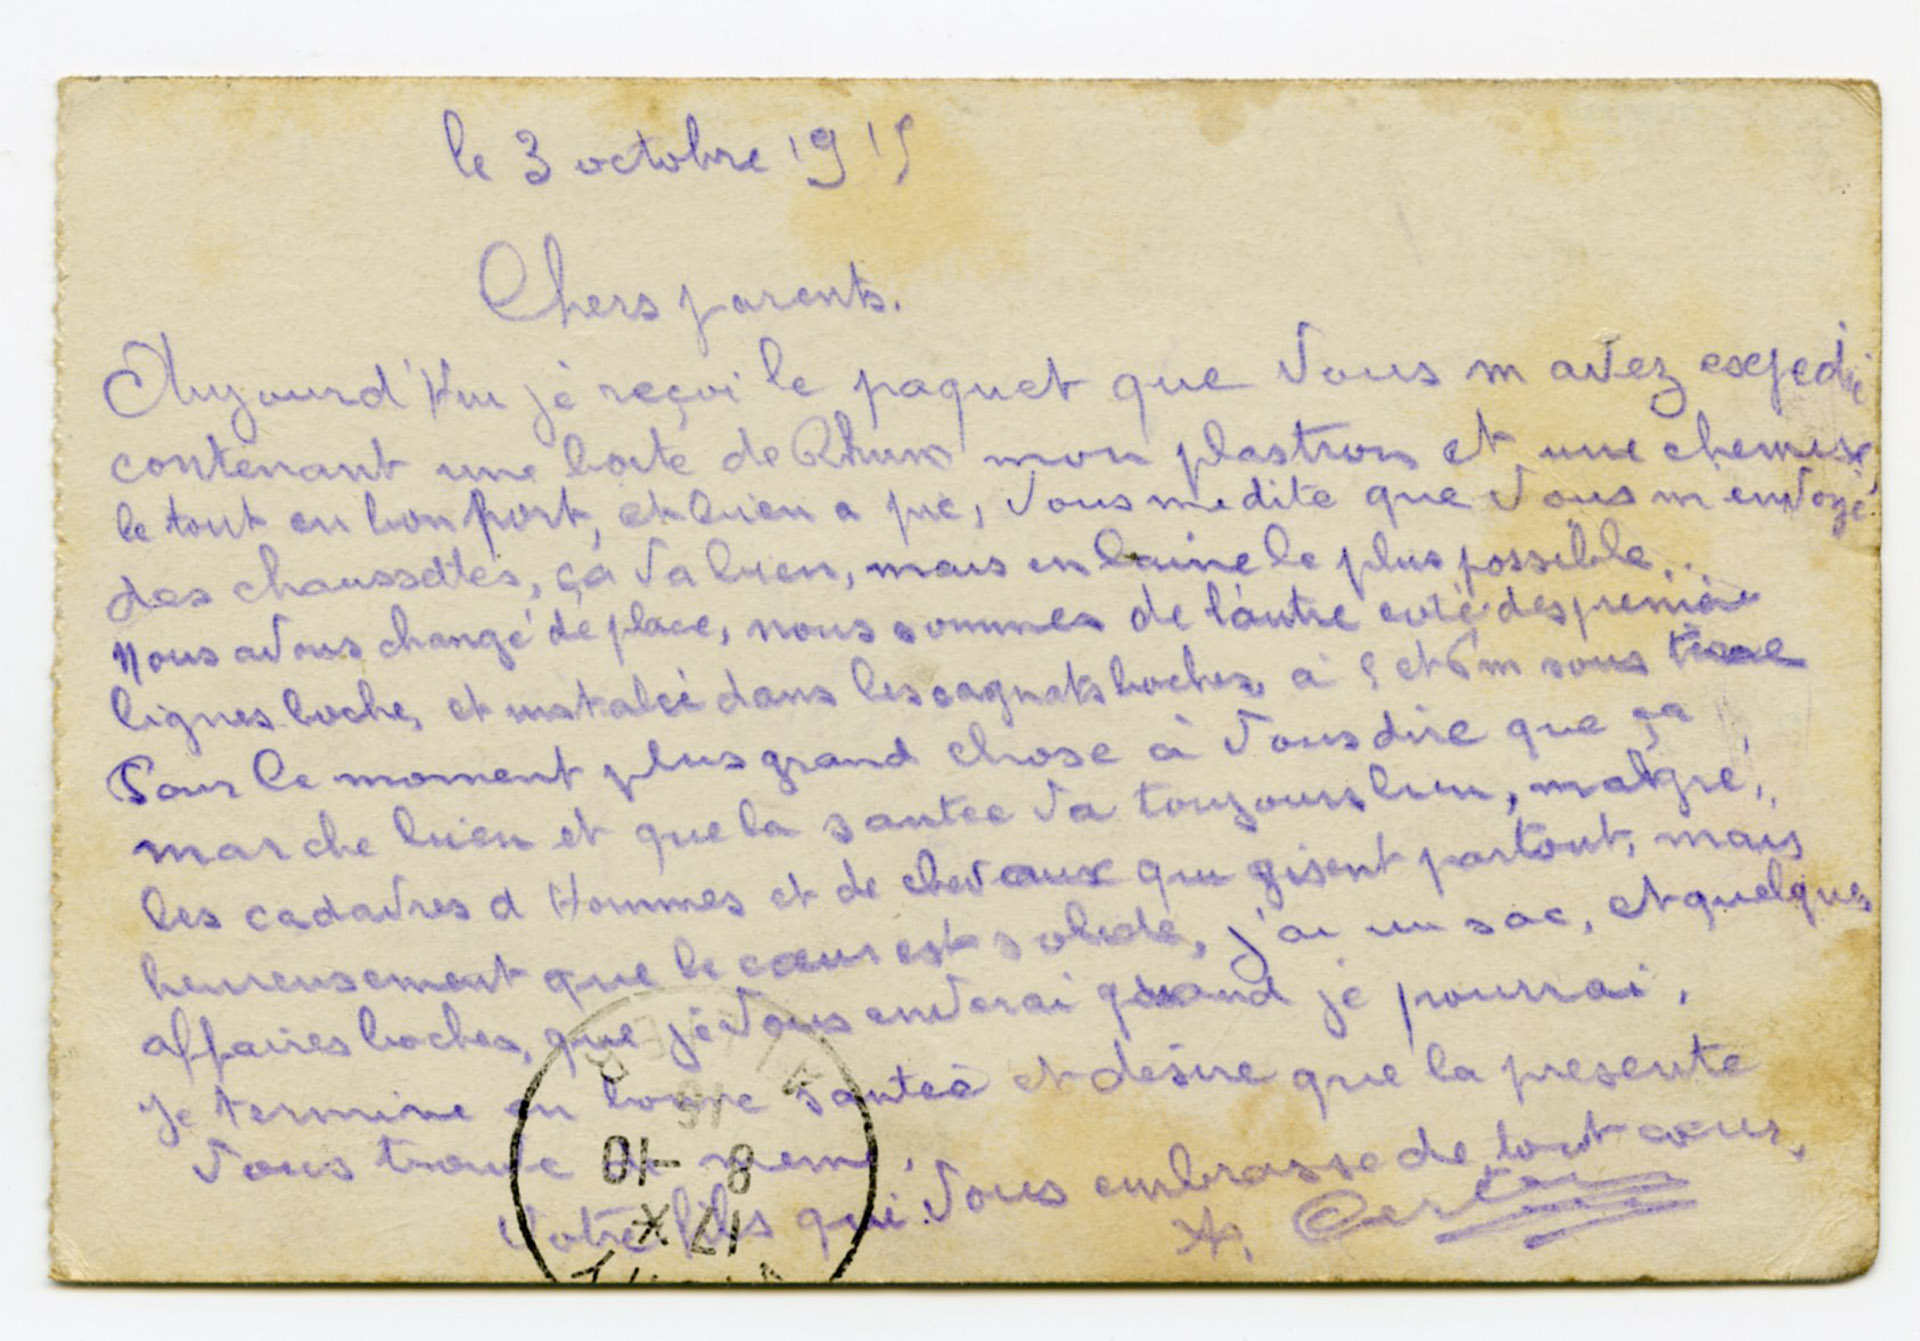 le 3 octobre 1915
Chers parents.
Aujourd'Hui je reçoi le paquet que vous m avez expedié
contenant une boite de Rhum mon plastron et une chemise,
le tout en bon port, et bien a pic, vous me dite que vous m envoyé
des chaussettes, ça va bien, mais en laine le plus possible..
Nous avons changé de place, nous sommes de l'autre coté des premiere
lignes boche, et instalé dans les cagnats boches, à 5 et 6 m sous terre
Pour le moment plus grand chose à vous dire que ça
marche bien et que la santee va toujours bien, malgré,
les cadavres d Hommes et de chevaux qui gisent partout, mais
heureusement que le cœur est solide, j'ai un sac, et quelques
affaires boches, que je vous enverai quand je pourrai,
je termine en bonne santeé et desire que la presente
vous trouve de meme,
votre fils qui vous embrasse de tout cœur,
8 -10
17 X